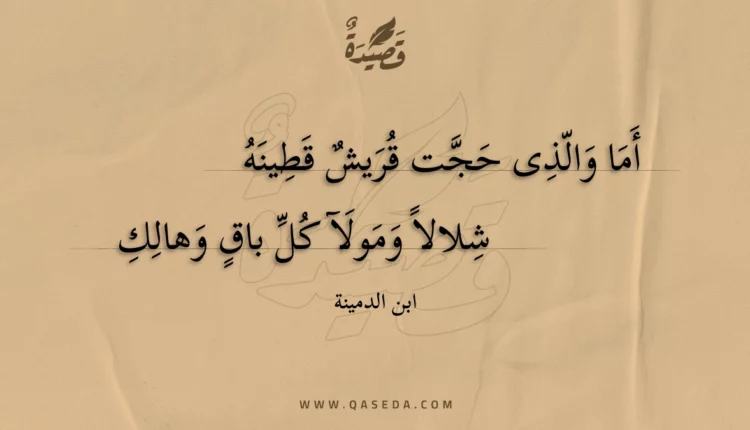 قَصِيْدَةٌ
أَمَا وَالّذِى حَجَّت قُرَيشٌ قَطِينَهُ
شِلالاً وَمَولَآ كُلِّ باقٍ وَهالِكِ
ابن الدمينة
WWW.QASEDA.COM